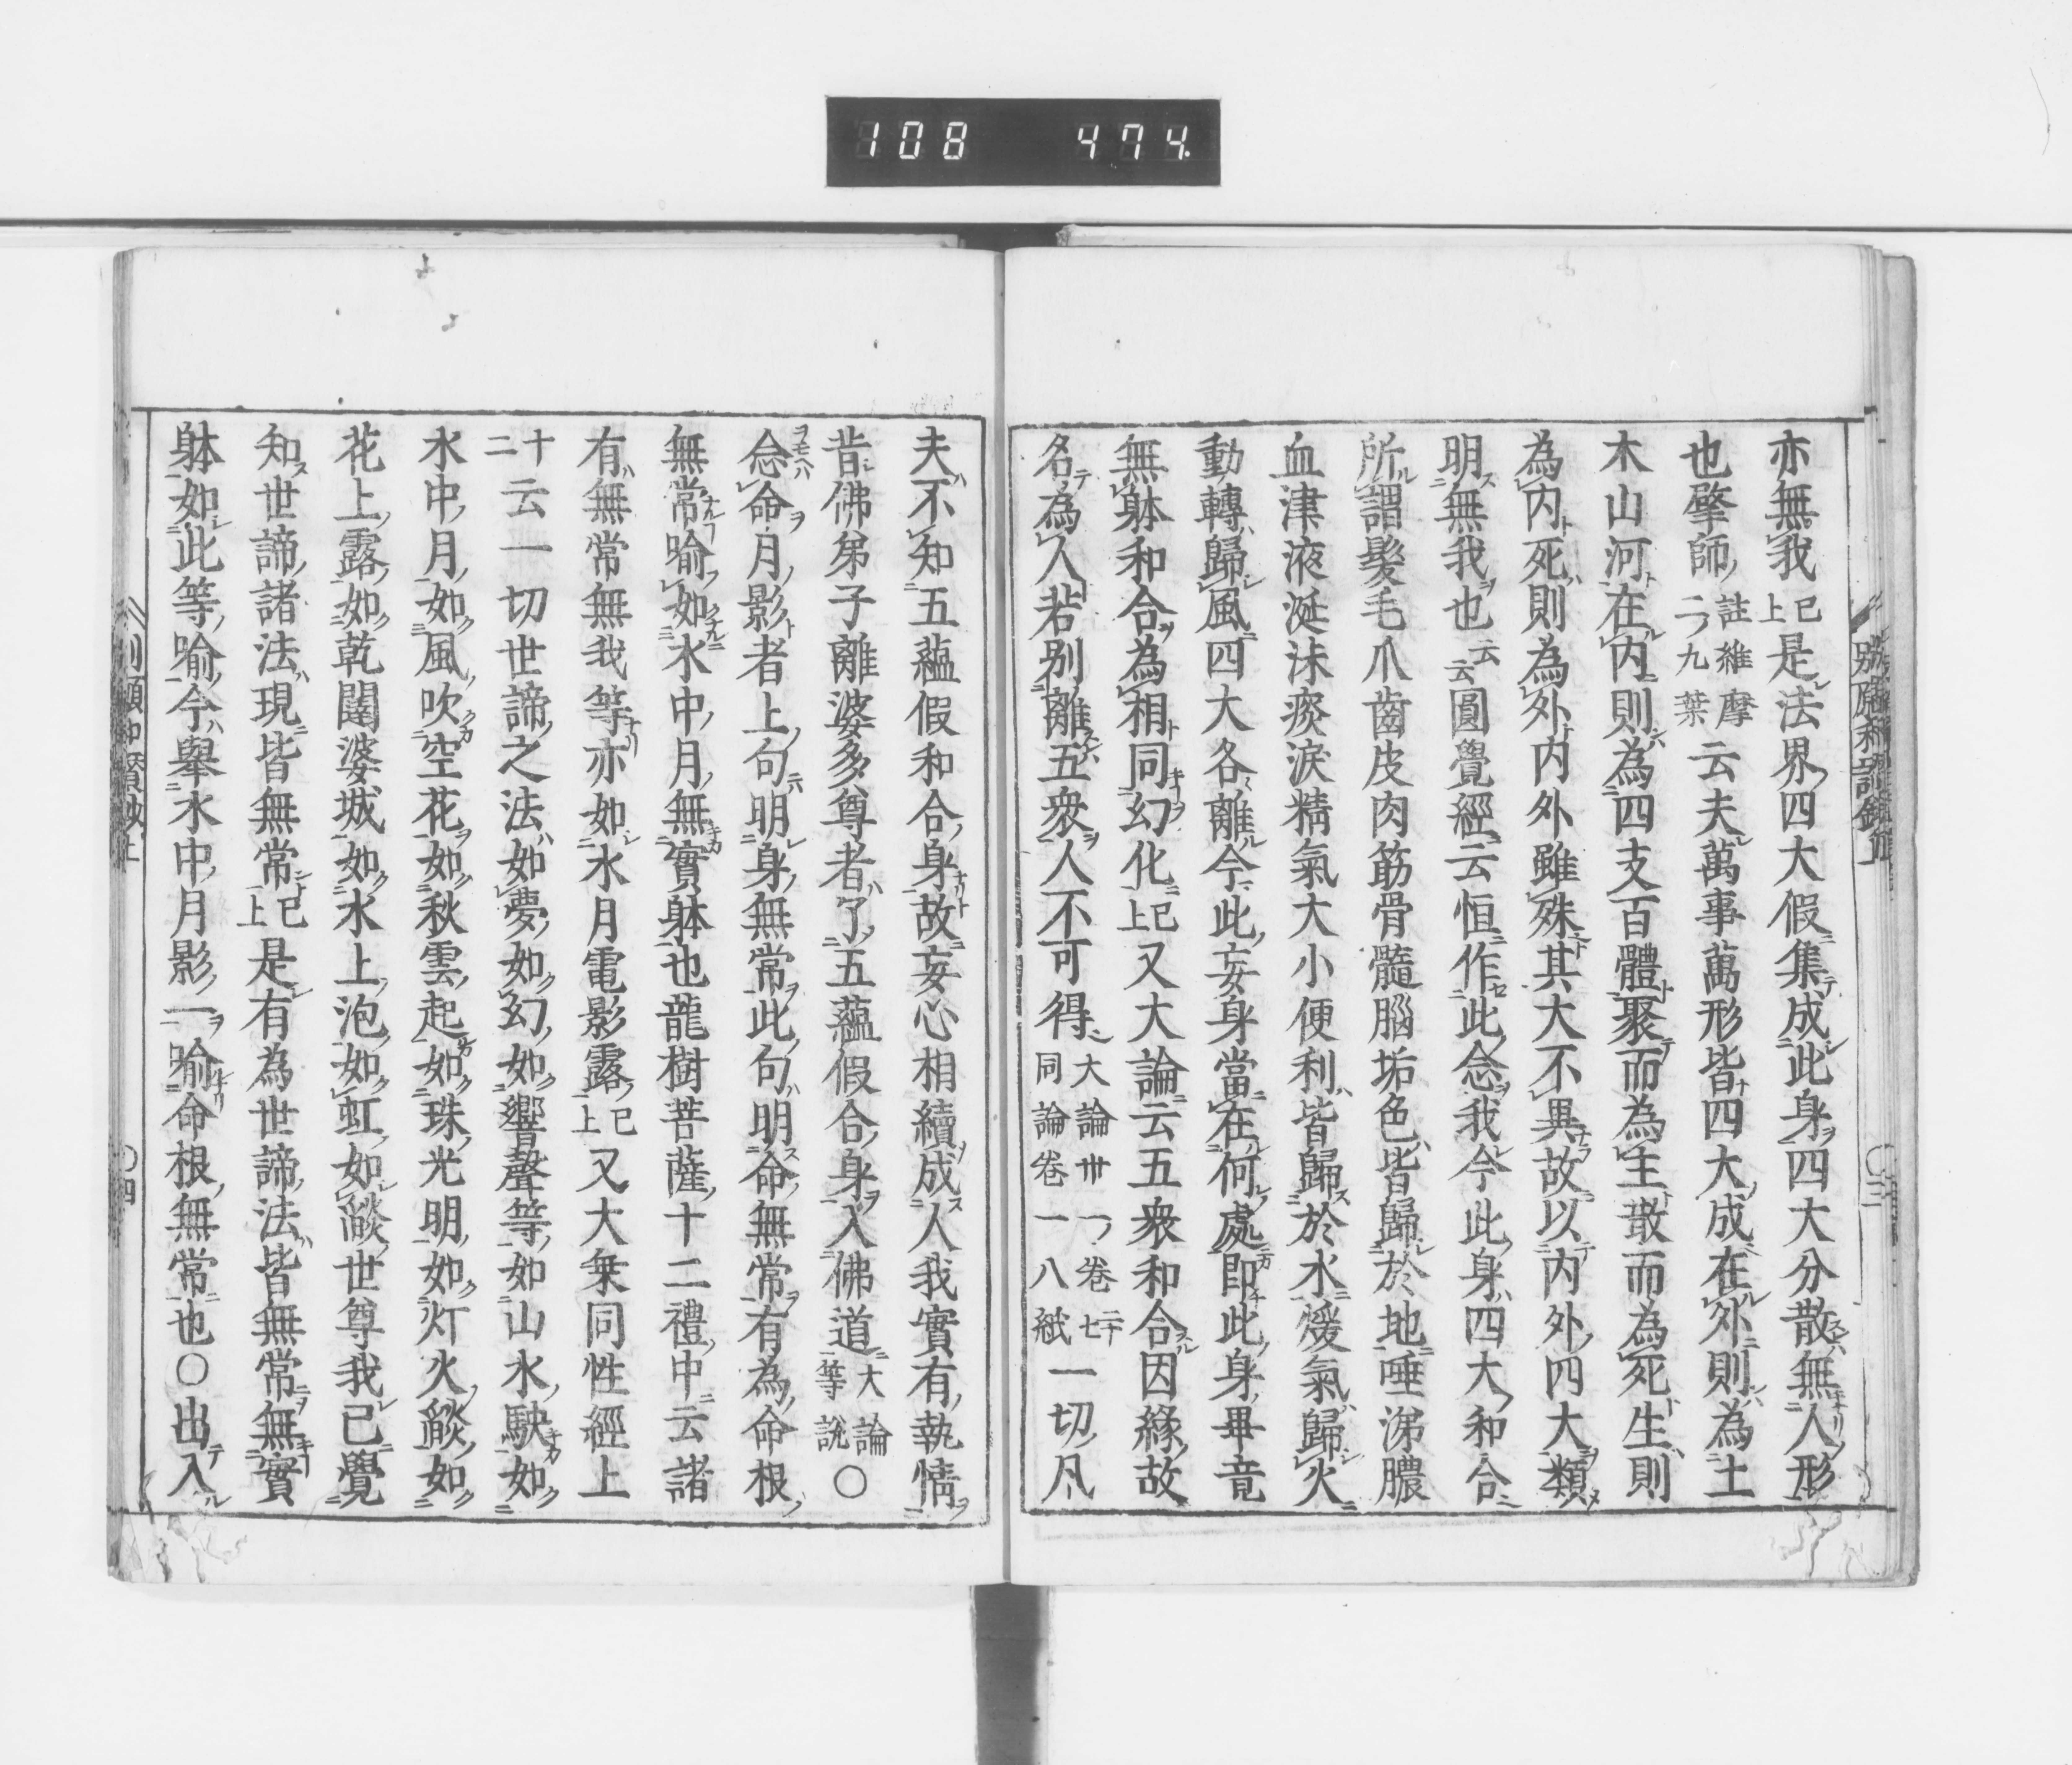 108 474.
亦無我已上是法界四大假集成此身四大分散無人形
也肇師註維摩二九葉云夫萬事萬形皆四大成在外則為土
木山河在内則為四支百體聚而為生散而為死生則
為内死則為外内外雖殊其大不異故以内外四大類
明無我也云云圓覺經云恒作此念我今此身四大和合
所謂髮毛爪齒皮肉筋骨髓腦垢色皆歸於地唾涕膿
血津液涎沫痰淚精氣大小便利皆歸於水煖氣歸火
動轉歸風四大各離今此妄身當在何處即此身畢竟
無躰和合為相同幻化已上又大論云五衆和合因緣故
名為人若別離五衆人不可得大論卅一卷二十七同論卷一八紙一切凡
夫不知五蘊假和合身故妄心相續成人我實有執情
昔佛弟子離婆多尊者了五蘊假合身入佛道大論等説〇
念命月影者上句明身無常此句明命無常有為命根
無常喻如水中月無實躰也龍樹菩薩十二禮中云諸
有無常無我等亦如水月電影露已上又大乗同性經上
十二云一切世諦之法如夢如幻如響聲等如山水駃如
水中月如風吹空花如秋雲起如珠光明如灯火燄如
花上露如乾闥婆城如水上泡如虹如燄世尊我已覺
知世諦諸法現皆無常已上是有為世諦法皆無常無實
躰如此等喻今舉水中月影一喻命根無常也〇出入
別願和讃鈔上 〇四